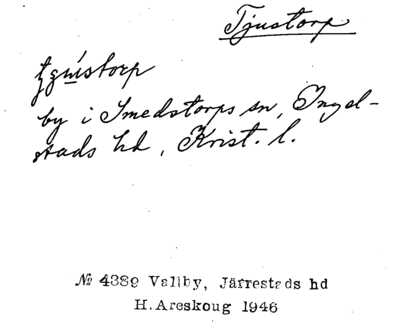 Tjustorp
by i Smedstorps sn, Ingel-
stads hd, Krist. l.
№ 4389 Vallby, Järrestads hd
H. Areskoug 1946